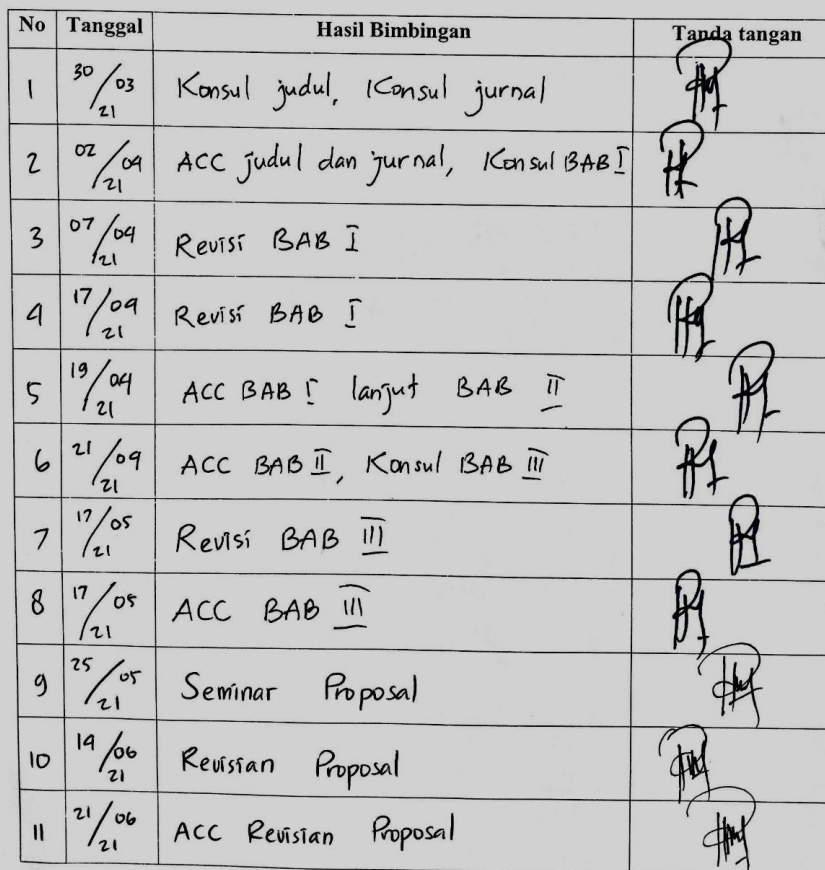 No Tanggal Hasil Bimbingan Tanda tangan
1 30/03/21 Konsul judul, Konsul jurnal
2 02/04/21 ACC judul dan jurnal, Konsul BAB I
3 07/04/21 Revisi BAB I
4 17/04/21 Revisi BAB I
5 19/04/21 ACC BAB I lanjut BAB II
6 21/04/21 ACC BAB II, Konsul BAB III
7 17/05/21 Revisi BAB III
8 17/05/21 ACC BAB III
9 25/05/21 Seminar Proposal
10 14/06/21 Revisian Proposal
11 21/06/21 ACC Revisian Proposal